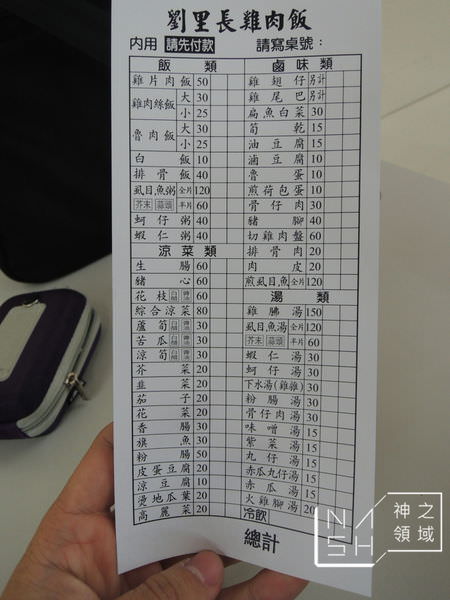 劉里長雞肉飯
內用 請先付款 請寫桌號：
飯類
雞片肉飯 50
雞肉絲飯 大 30
小 25
魯肉飯 大 30
小 25
白飯 10
排骨飯 40
虱目魚粥 全片 120
芥末 蒜頭 半片 60
蚵仔粥 40
蝦仁粥 40
涼菜類
生腸 60
豬心 60
花枝 60
綜合涼菜 80
蘆筍 30
苦瓜 30
涼筍 30
芥菜 20
韭菜 20
茄子 20
花菜 20
香腸 30
旗魚 30
粉腸 50
皮蛋豆腐 20
涼豆腐 10
燙地瓜葉 20
高麗菜 20
滷味類
雞翅仔 另計
雞尾巴 另計
扁魚白菜 30
筍乾 15
油豆腐 15
滷豆腐 10
魯蛋 10
煎荷包蛋 10
骨仔肉 30
豬腳 40
切雞肉盤 60
排骨肉 20
肉皮 20
煎虱目魚 全片 120
湯類
雞腳湯 150
虱目魚湯 全片 120
芥末 蒜頭 半片 60
蝦仁湯 30
蚵仔湯 30
下水湯(雞雜) 30
粉腸湯 30
骨仔肉湯 30
味噌湯 15
紫菜湯 15
丸仔湯 15
赤瓜丸仔湯 15
赤瓜湯 15
火雞腳湯 20
冷飲
總計
NASH 神之領域